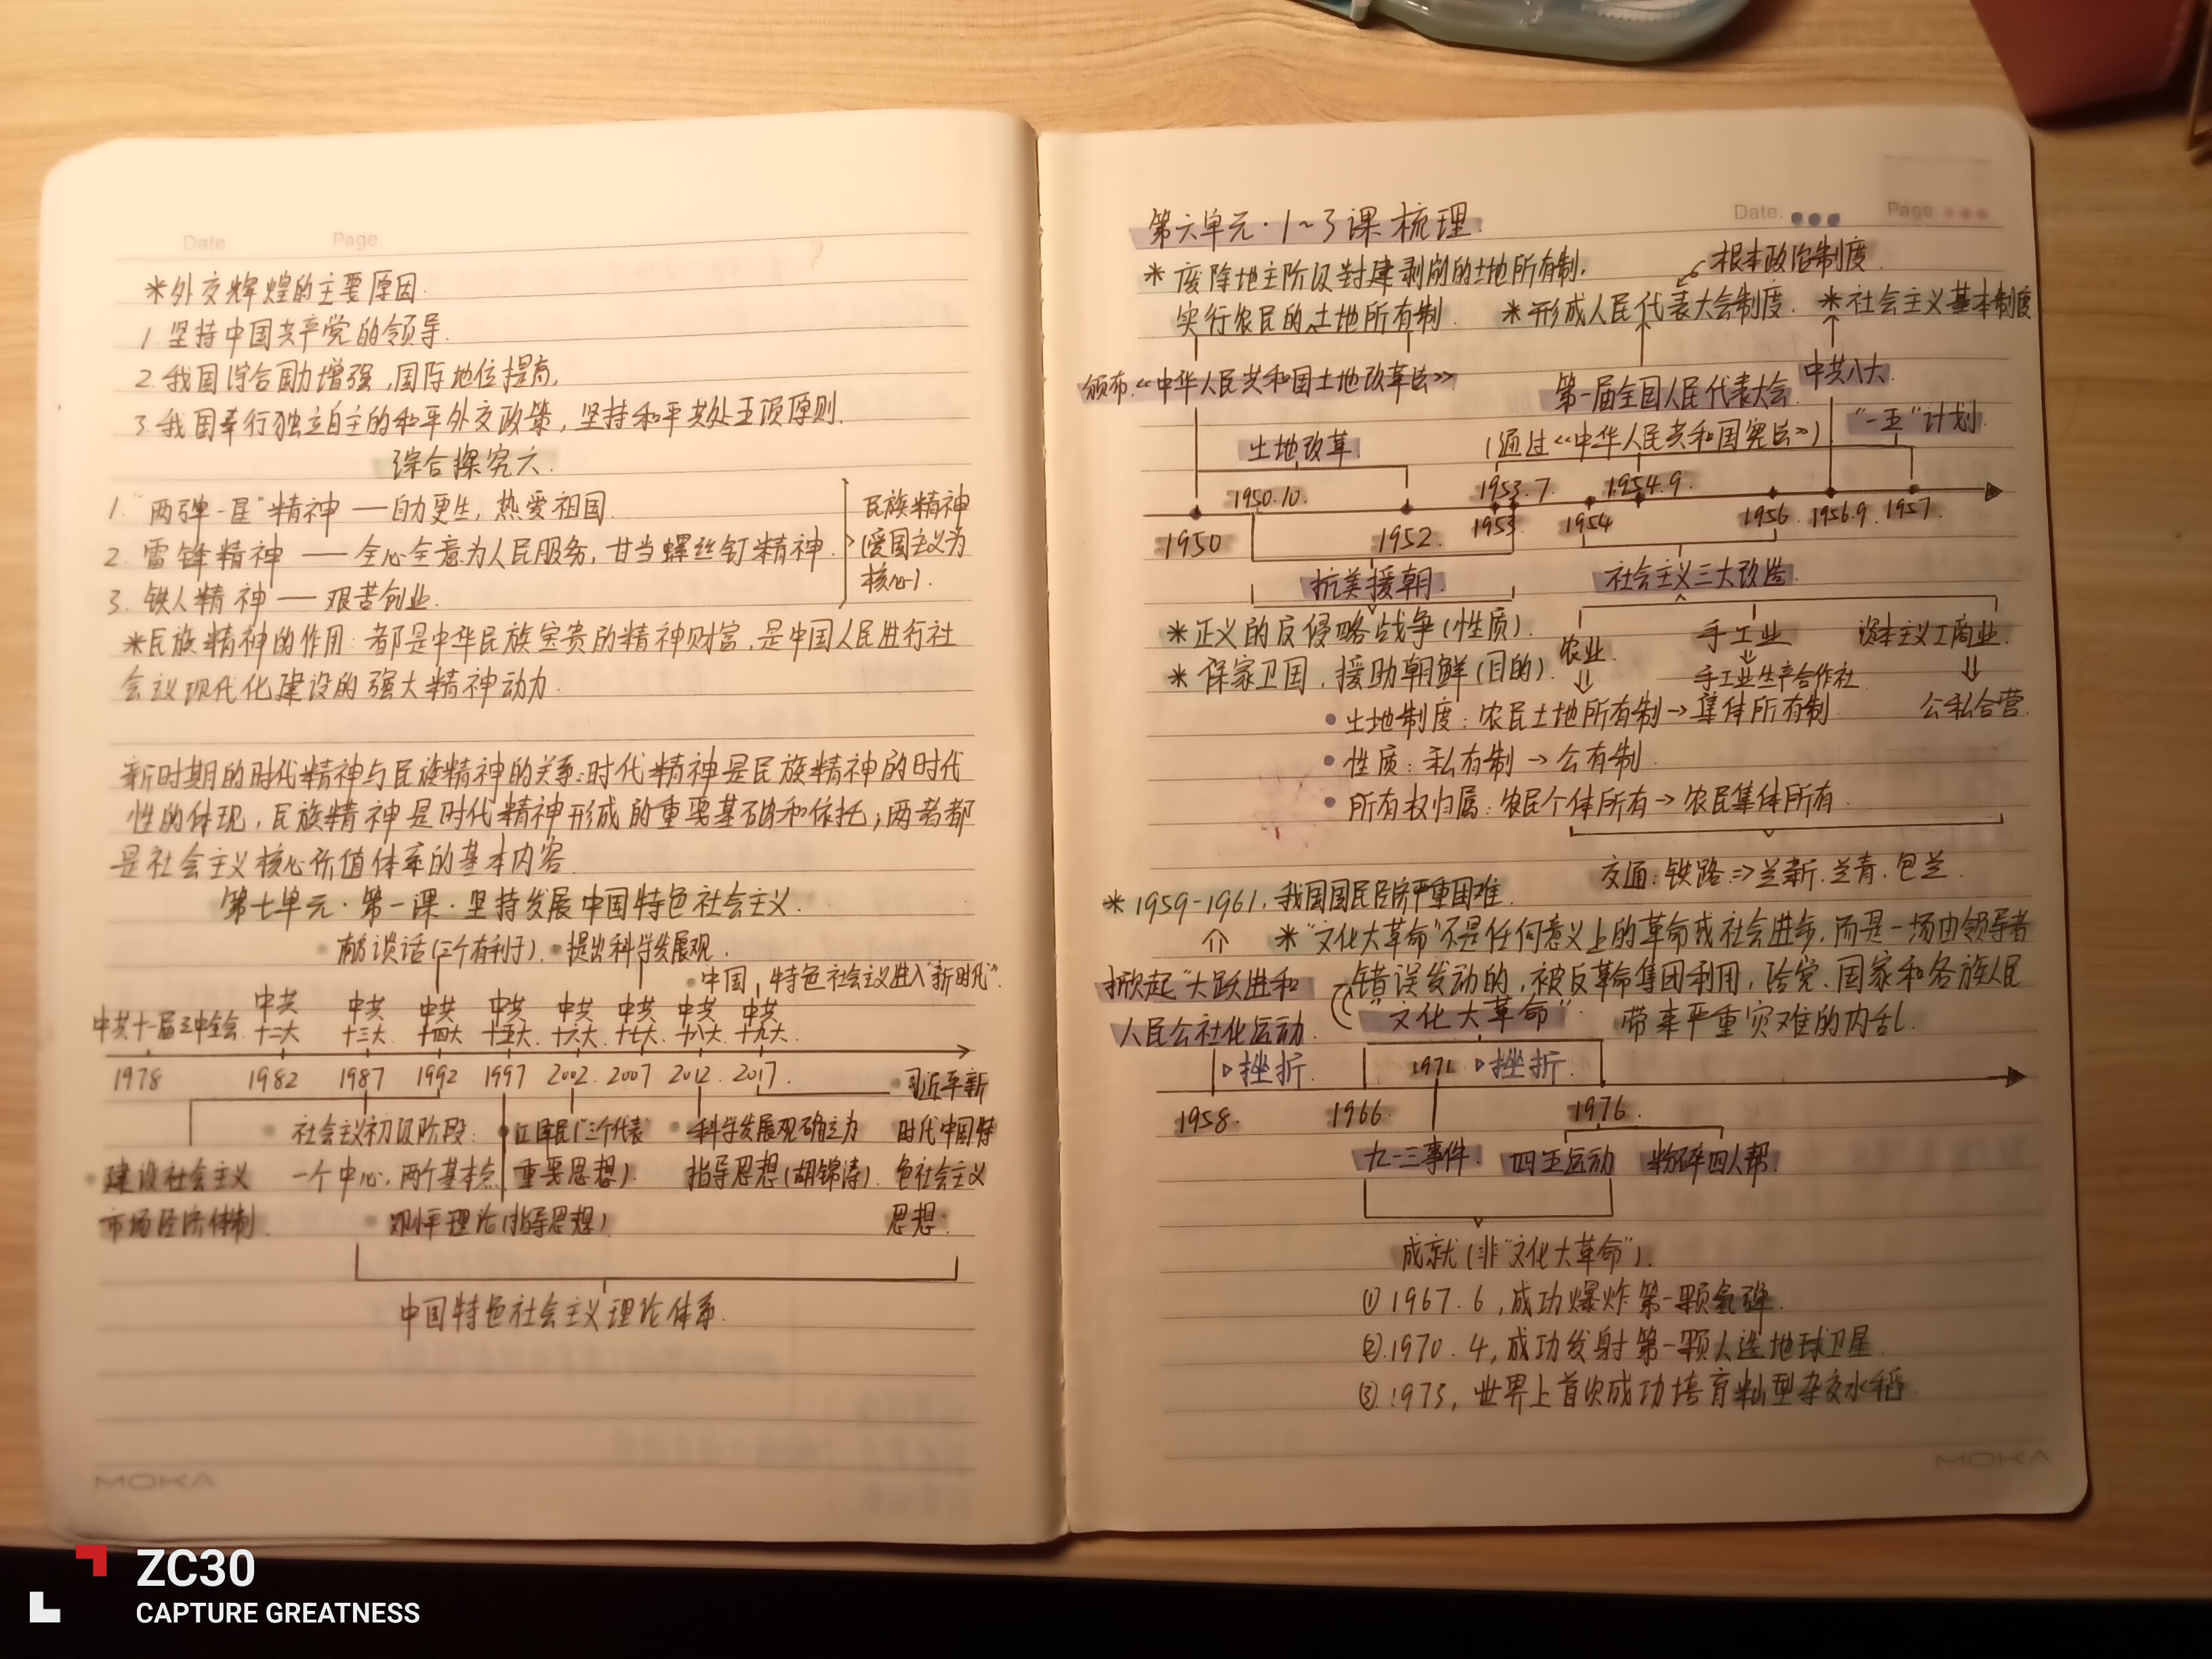 Date.
Page.
*外交辉煌的主要原因.
1. 坚持中国共产党的领导.
2. 我国综合国力增强,国际地位提高,
3. 我国奉行独立自主的和平外交政策,坚持和平共处五项原则.
综合探究六.
1. "两弹一星"精神 — 自力更生,热爱祖国.
2. 雷锋精神 — 全心全意为人民服务,甘当螺丝钉精神.
3. 铁人精神 — 艰苦创业.
民族精神
(爱国主义为
核心).
*民族精神的作用:都是中华民族宝贵的精神财富,是中国人民进行社
会主义现代化建设的强大精神动力.
新时期的时代精神与民族精神的关系:时代精神是民族精神的时代
性的体现,民族精神是时代精神形成的重要基础和依托;两者都
是社会主义核心价值体系的基本内容.
第七单元·第一课·坚持发展中国特色社会主义.
南方谈话(三个有利于).
提出科学发展观.
中国特色社会主义进入"新时代".
中共十一届三中全会
中共十二大
中共十三大
中共十四大
中共十五大.
中共十六大.
中共十七大.
中共十八大.
中共十九大.
1978 1982 1987 1992 1997 2002. 2007 2012. 2017.
建设社会主义
市场经济体制
社会主义初级阶段:
一个中心,两个基本点
邓小平理论(指导思想)
江泽民("三个代表"
重要思想).
科学发展观确立为
指导思想(胡锦涛).
习近平新
时代中国特
色社会主义
思想.
中国特色社会主义理论体系.
MOKA
Date.
Page.
第六单元·1~3课梳理.
* 废除地主阶级封建剥削的土地所有制,
实行农民的土地所有制.
根本政治制度.
*形成人民代表大会制度.
*社会主义基本制度
颁布《中华人民共和国土地改革法》
第一届全国人民代表大会.
(通过《中华人民共和国宪法》)
中共八大.
"一五"计划.
土地改革
1950.10.
1953.7.
1954.9.
1950 1952. 1953 1954 1956. 1956.9. 1957.
抗美援朝.
社会主义三大改造.
*正义的反侵略战争(性质).
* 保家卫国,援助朝鲜(目的).
农业.
手工业
手工业生产合作社.
资本主义工商业.
公私合营.
土地制度:农民土地所有制→集体所有制.
性质:私有制→公有制.
所有权归属:农民个体所有→农民集体所有.
交通:铁路⇒兰新.兰青.包兰.
* 1959-1961,我国国民经济严重困难.
* "文化大革命"不是任何意义上的革命或社会进步,而是一场由领导者
错误发动的,被反革命集团利用,给党、国家和各族人民
带来严重灾难的内乱.
掀起"大跃进和
人民公社化运动.
"文化大革命".
挫折.
1971
挫折.
1958. 1966. 1976.
九一三事件.
四五运动
粉碎四人帮.
成就(非"文化大革命").
① 1967.6,成功爆炸第一颗氢弹.
② 1970.4,成功发射第一颗人造地球卫星.
③ 1973,世界上首次成功培育籼型杂交水稻.
MOKA
ZC30
CAPTURE GREATNESS